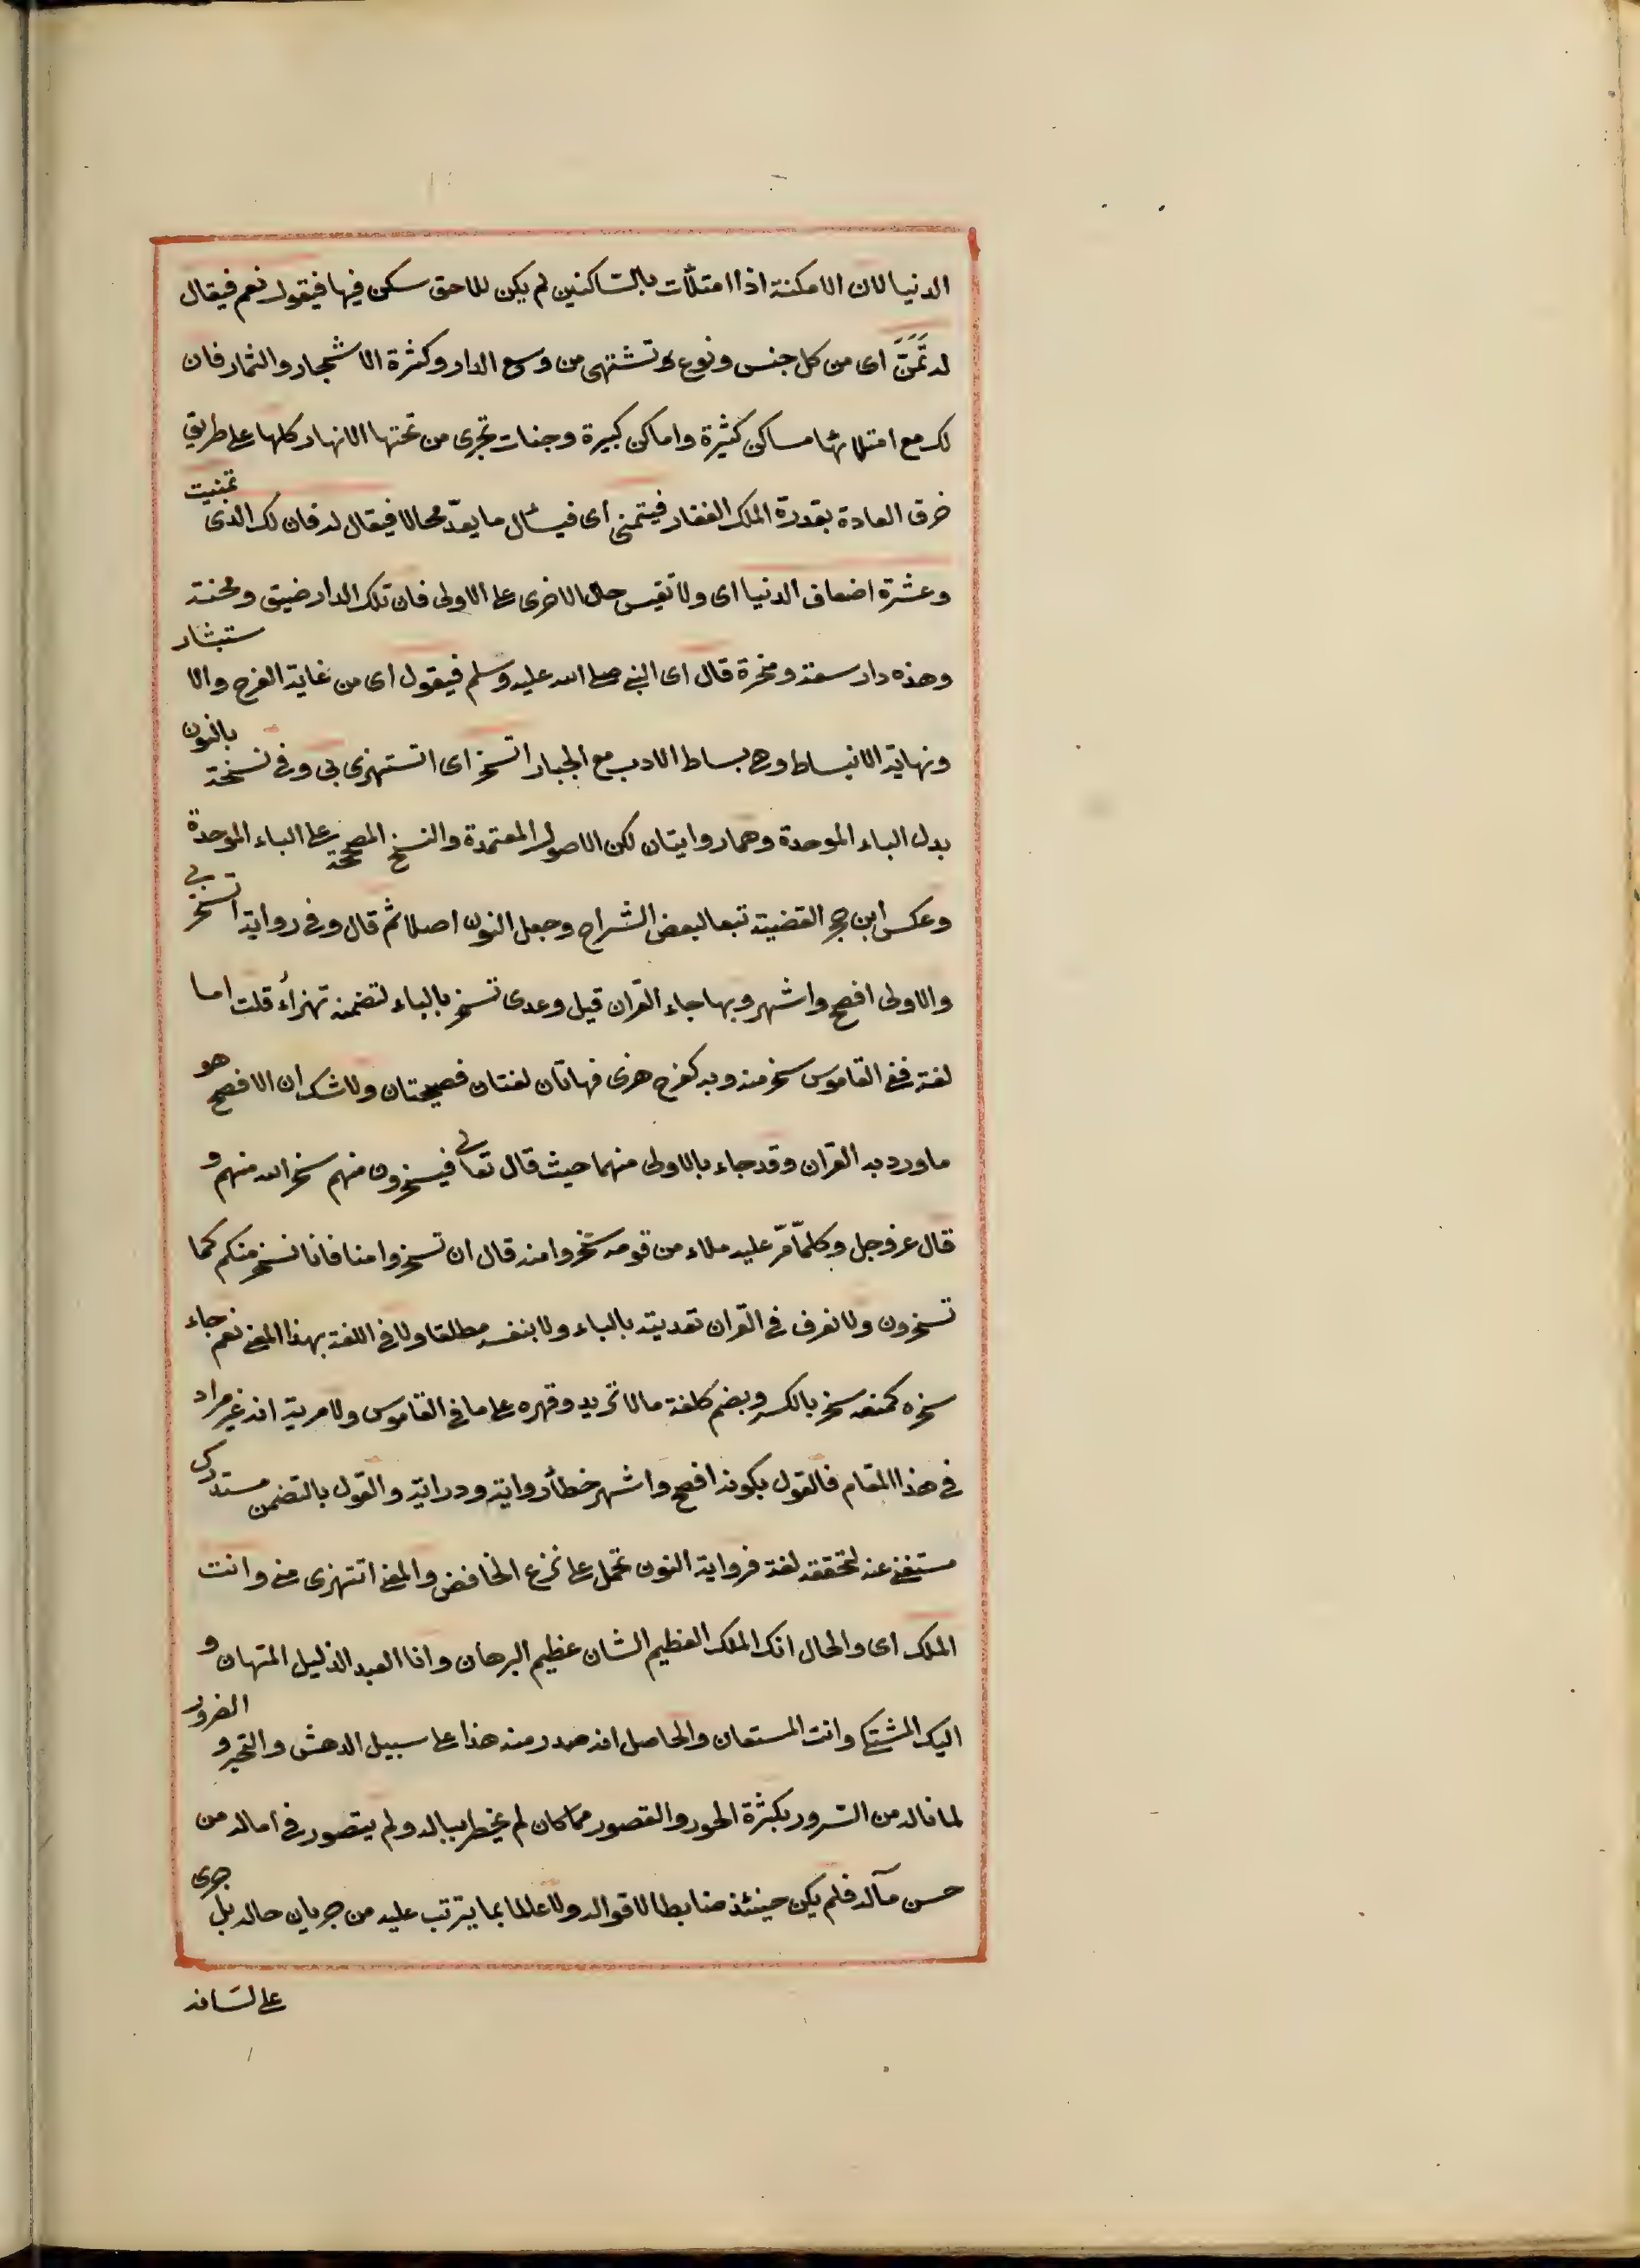 الدنيا لان الامكنة اذا امتلأت بالساكنين لم يكن للاحق سكن فيها فيقول نعم فيقال
له تَمَنَّ اى من كل جنس ونوع تشتهى من وسع الدار وكثرة الاشجار والثمار فان
لك مع امتلائها مساكن كثيرة واماكن كبيرة وجنات تجرى من تحتها الانهار كلها على طريق
خرق العادة بقدرة الملك الغفار فيتمنى اى فيسأل ما يعدّ محالا فيقال له فان لك الذى تمنيت
وعشرة اضعاف الدنيا اى ولا تقيس حال الاخرى على الاولى فان تلك الدار ضيق ومحنة
وهذه دار سعة ومنحة قال اى النبى صلى الله عليه وسلم فيقول اى من غاية الفرح والاستبشار
ونهاية الانبساط وطى بساط الادب مع الجبار اتسخر اى اتستهزئ بى وفى نسخة بالنون
بدل الباء الموحدة وهما روايتان لكن الاصول المعتمدة والنسخ المصححة على الباء الموحدة
وعكس ابن حجر القضية تبعا لبعض الشراح وجعل النون اصلا ثم قال وفى رواية اتسخر بى
والاولى افصح واشهر وبها جاء القران قيل وعدى تسخر بالباء لتضمنه تهزأ، قلت اما
لغة ففى القاموس سخر منه وبه كفرح هزئ فهاتان لغتان فصيحتان ولا شك ان الافصح هو
ما ورد به القران وقد جاء بالاولى منهما حيث قال تعالى فيسخرون منهم سخر الله منهم و
قال عز وجل وكلّما مرّ عليه ملاء من قومه سخروا منه قال ان تسخروا منا فانا نسخر منكم كما
تسخرون ولا نعرف فى القران تعديته بالباء ولا بنفسه مطلقا ولا فى اللغة بهذا المعنى نعم جاء
سخره كمنعه سخر بالكسر وبضم كلفه ما لا تريد وقهره على ما فى القاموس ولا مرية انه غير مراد
فى هذا المقام فالقول بكونه افصح واشهر خطأ رواية ودراية والقول بالتضمن مستدرك
مستغنى عنه لتحققه لغة فرواية النون تحمل على نزع الخافض والمعنى اتتهزى منى وانت
الملك اى والحال انك الملك العظيم الشان عظيم البرهان وانا العبد الذليل المتهان و
اليك المشتكى وانت المستعان والحاصل انه صدر منه هذا على سبيل الدهش والتحير والغرور
لما ناله من السرور بكثرة الحور والقصور مما كان لم يخطر بباله ولم يتصور فى اماله من
حسن مآله فلم يكن حينئذ ضابطا لاقواله ولا عالما بما يترتب عليه من جريان حاله بل جرى
على لسانه